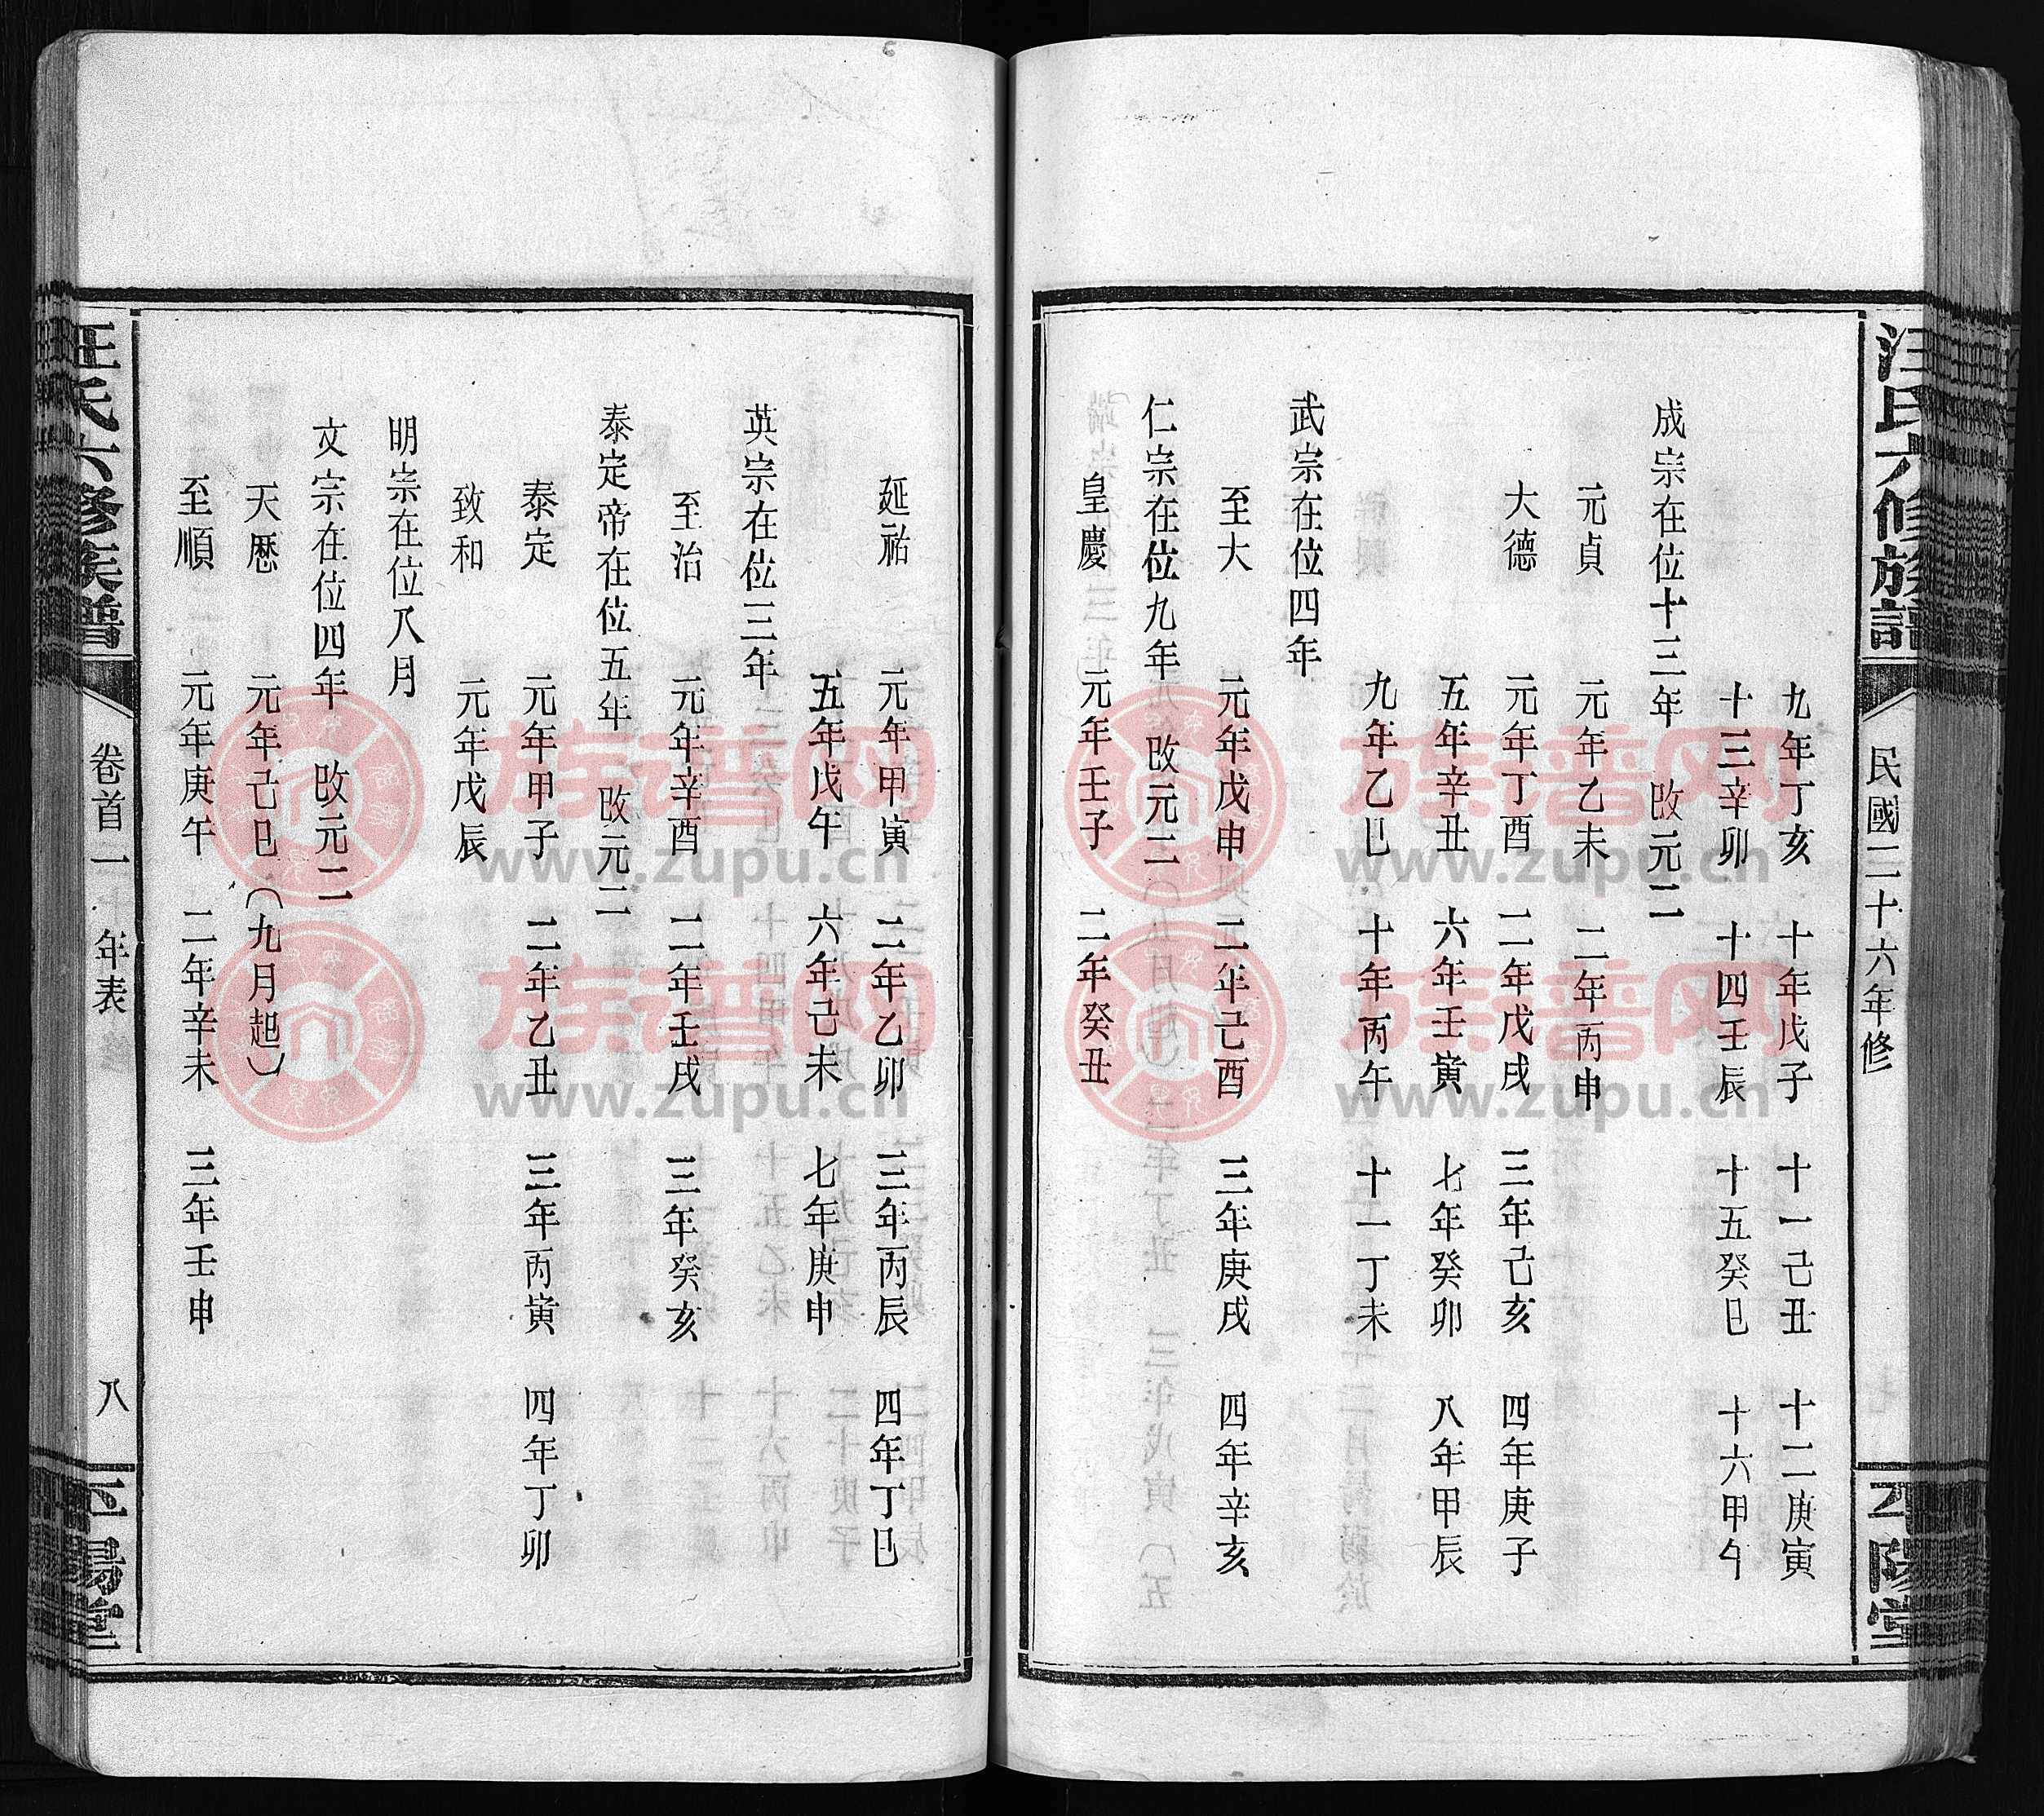 汪氏六修族譜
民國二十六年修
平陽堂
九年丁亥 十年戊子 十一己丑 十二庚寅
十三辛卯 十四壬辰 十五癸巳 十六甲午
成宗在位十三年 改元二
元貞 元年乙未 二年丙申
大德 元年丁酉 二年戊戌 三年己亥 四年庚子
五年辛丑 六年壬寅 七年癸卯 八年甲辰
九年乙巳 十年丙午 十一丁未
武宗在位四年
至大 元年戊申 二年己酉 三年庚戌 四年辛亥
仁宗在位九年 改元二
皇慶 元年壬子 二年癸丑
延祐 元年甲寅 二年乙卯 三年丙辰 四年丁巳
五年戊午 六年己未 七年庚申
英宗在位三年
至治 元年辛酉 二年壬戌 三年癸亥
泰定帝在位五年 改元二
泰定 元年甲子 二年乙丑 三年丙寅 四年丁卯
致和 元年戊辰
明宗在位八月
文宗在位四年 改元二
天歷 元年己巳（九月起）
至順 元年庚午 二年辛未 三年壬申
汪氏六修族譜
卷首二十年表
八
平陽堂
族谱网
www.zupu.cn
族谱网
www.zupu.cn
族谱网
www.zupu.cn
族谱网
www.zupu.cn